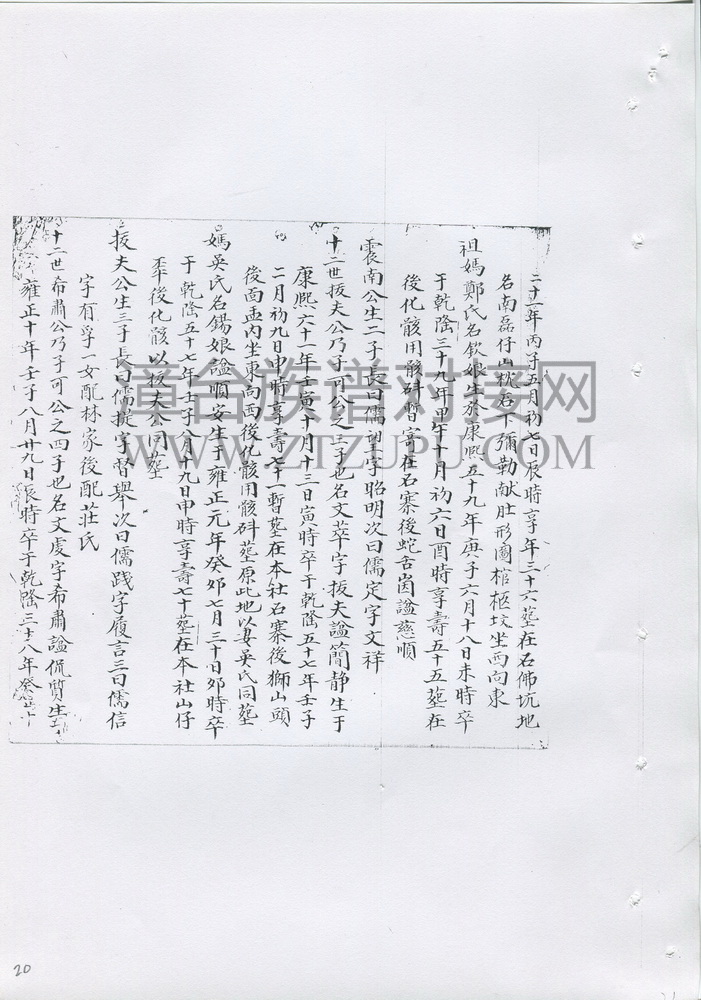 二十一年丙子五月初七日辰時享年三十六墓在石佛坑地
名南磊仔山枕石下彌勒献肚形圖棺柩坟坐西向東
祖媽鄭氏名欽娘生於康熙五十九年庚子六月十八日未時卒
于乾隆三十九年甲午十月初六日酉時享壽五十五墓在
後化骸用骸㪷暫寄在石寨後蛇舌崗謚慈順
震南公生二子長曰儒 字昭明次曰儒定字文祥
十二世拔夫公乃子可公之三子也名文萃字拔夫謚簡静生于
康熙六十一年壬寅十月十三日寅時卒于乾隆五十七年壬子
二月初九日申時享壽七十一暫墓在本社石寨後獅山頭
後面盂内坐東向西後化骸用骸㪷墓原此地以妻吳氏同墓
媽吳氏名錫娘謚順安生于雍正元年癸卯七月三十日卯時卒
于乾隆五十七年壬子八月十九日申時享壽七十墓在本社山仔
後化骸以拔夫公同墓
拔夫公生三子長曰儒掟字督舉次曰儒践字履言三曰儒信
字有孚一女配林家後配莊氏
十二世布肅公乃子可公之四子也名文虔字布肅謚侃質生于
雍正十年壬子八月廿九日辰時卒于乾隆三十八年癸巳十
童台族谱对接网
WWW.ZTZUPU.COM
20